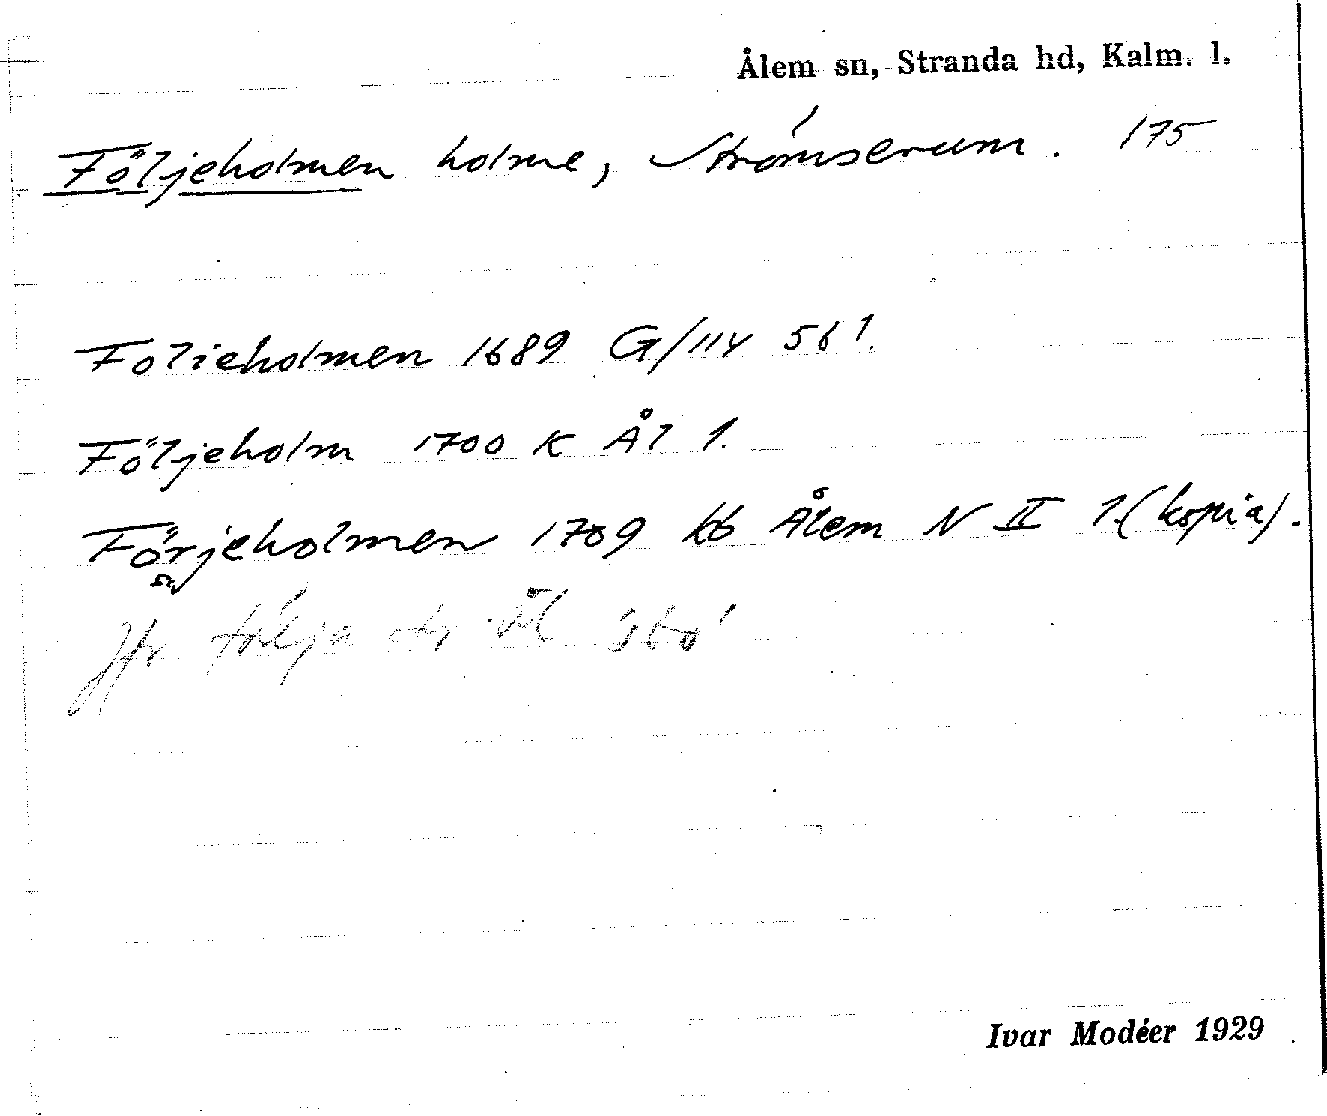 Ålem sn, Stranda hd, Kalm. l.
Följeholmen holme, Strömserum. 175
Folieholmen 1689 G/114 561.
Följeholm 1700 K Ål 1.
Förjeholmen 1709 kb Ålem N II 1. (kopia).
Jfr följa
Ivar Modéer 1929